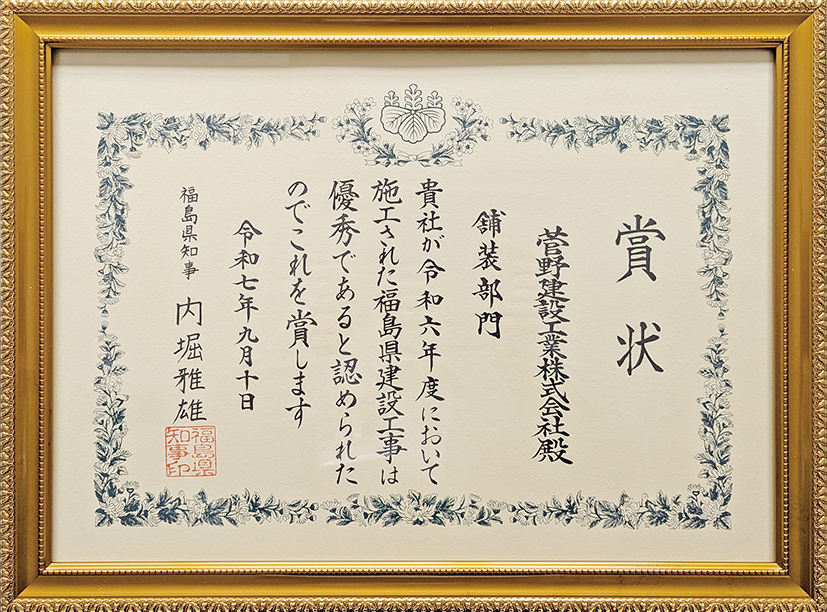 賞状
菅野建設工業株式会社殿
舗装部門
貴社が令和六年度において
施工された福島県建設工事は
優秀であると認められた
のでこれを賞します
令和七年九月十日
福島県知事 内堀雅雄
福島県
知事印